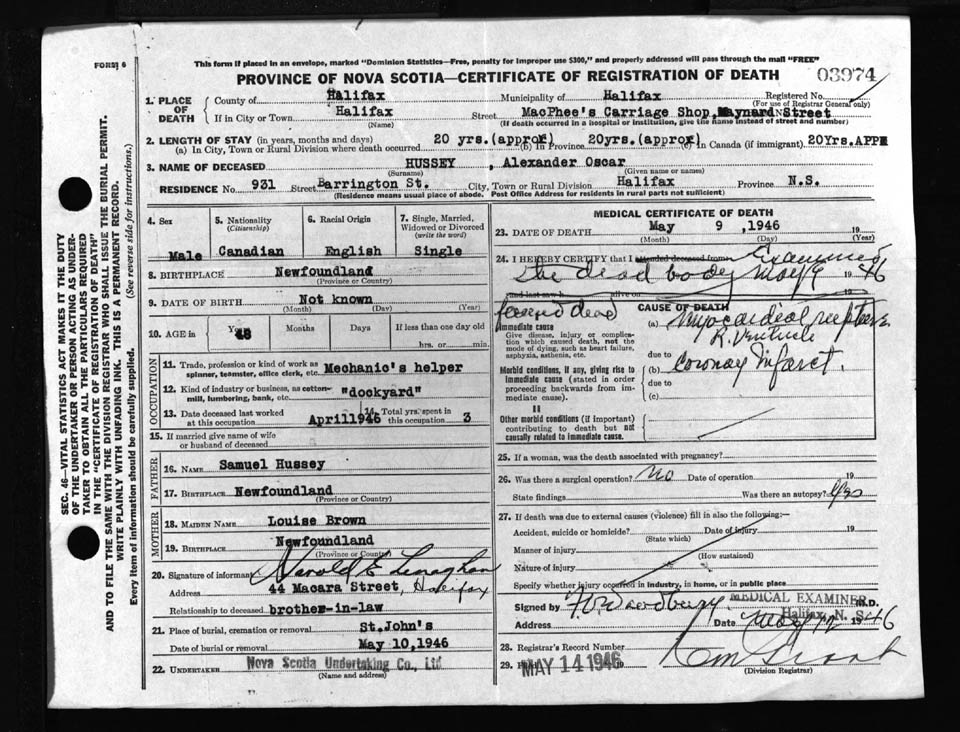 FORM 6
This form if placed in an envelope, marked "Dominion Statistics—Free, penalty for improper use $300," and properly addressed will pass through the mail "FREE"
PROVINCE OF NOVA SCOTIA—CERTIFICATE OF REGISTRATION OF DEATH
03974
1. PLACE OF DEATH
County of Halifax Municipality of Halifax Registered No.
(For use of Registrar General only)
If in City or Town Halifax Street MacPhee's Carriage Shop, Maynard Street
(Name) (If death occurred in a hospital or institution, give the name instead of street and number)
2. LENGTH OF STAY (in years, months and days)
(a) In City, Town or Rural Division where death occurred 20 yrs.(approx) (b) In Province 20yrs.(approx) (c) in Canada (if immigrant) 20Yrs.APPX
3. NAME OF DECEASED HUSSEY , Alexander Oscar
(Surname) (Given name or names)
RESIDENCE No. 931 Street Barrington St. City, Town or Rural Division Halifax Province N.S.
(Residence means usual place of abode. Post Office Address for residents in rural parts not sufficient)
4. Sex
Male
5. Nationality
(Citizenship)
Canadian
6. Racial Origin
English
7. Single, Married, Widowed or Divorced
(write the word)
Single
8. BIRTHPLACE Newfoundland
(Province or Country)
9. DATE OF BIRTH Not known
(Month) (Day) (Year)
10. AGE in Years Months Days If less than one day old
48 hrs. or min.
OCCUPATION
11. Trade, profession or kind of work as spinner, teamster, office clerk, etc. Mechanic's helper
12. Kind of industry or business, as cotton-mill, lumbering, bank, etc. "dockyard"
13. Date deceased last worked at this occupation April1946
14. Total yrs. spent in this occupation 3
15. If married give name of wife or husband of deceased
FATHER
16. NAME Samuel Hussey
17. BIRTHPLACE Newfoundland
(Province or Country)
MOTHER
18. MAIDEN NAME Louise Brown
19. BIRTHPLACE Newfoundland
(Province or Country)
20. Signature of informant Harold E Lenaghan
Address 44 Macara Street, Halifax
Relationship to deceased brother-in-law
21. Place of burial, cremation or removal St.John's
Date of burial or removal May 10,1946
22. UNDERTAKER Nova Scotia Undertaking Co., Ltd
(Name and address)
MEDICAL CERTIFICATE OF DEATH
23. DATE OF DEATH May 9 ,1946 19
(Month) (Day) (Year)
24. I HEREBY CERTIFY that I attended deceased from Examined
the dead body May 9 1946
and last saw h alive on 19
found dead
CAUSE OF DEATH
Immediate cause
Give disease, injury or complication which caused death, not the mode of dying, such as heart failure, asphyxia, asthenia, etc.
(a) Myocardial rupture
R. Ventricle
due to
Morbid conditions, if any, giving rise to immediate cause (stated in order proceeding backwards from immediate cause).
(b) Coronary Infarct.
due to
(c)
II
Other morbid conditions (if important) contributing to death but not causally related to immediate cause.
25. If a woman, was the death associated with pregnancy?
26. Was there a surgical operation? No Date of operation 19
State findings Was there an autopsy? Yes
27. If death was due to external causes (violence) fill in also the following:—
Accident, suicide or homicide? Date of injury 19
(State which)
Manner of injury
(How sustained)
Nature of injury
Specify whether injury occurred in industry, in home, or in public place
Signed by M.D.
MEDICAL EXAMINER
Halifax, N. S.
Address Date May 12 1946
28. Registrar's Record Number
29. MAY 14 1946 19
(Division Registrar)
SEC. 46—VITAL STATISTICS ACT MAKES IT THE DUTY
OF THE UNDERTAKER OR PERSON ACTING AS UNDER-
TAKER TO OBTAIN ALL THE PARTICULARS REQUIRED
IN THE "CERTIFICATE OF REGISTRATION OF DEATH"
AND TO FILE THE SAME WITH THE DIVISION REGISTRAR WHO SHALL ISSUE THE BURIAL PERMIT.
WRITE PLAINLY WITH UNFADING INK. THIS IS A PERMANENT RECORD.
Every item of information should be carefully supplied. (See reverse side for instructions.)